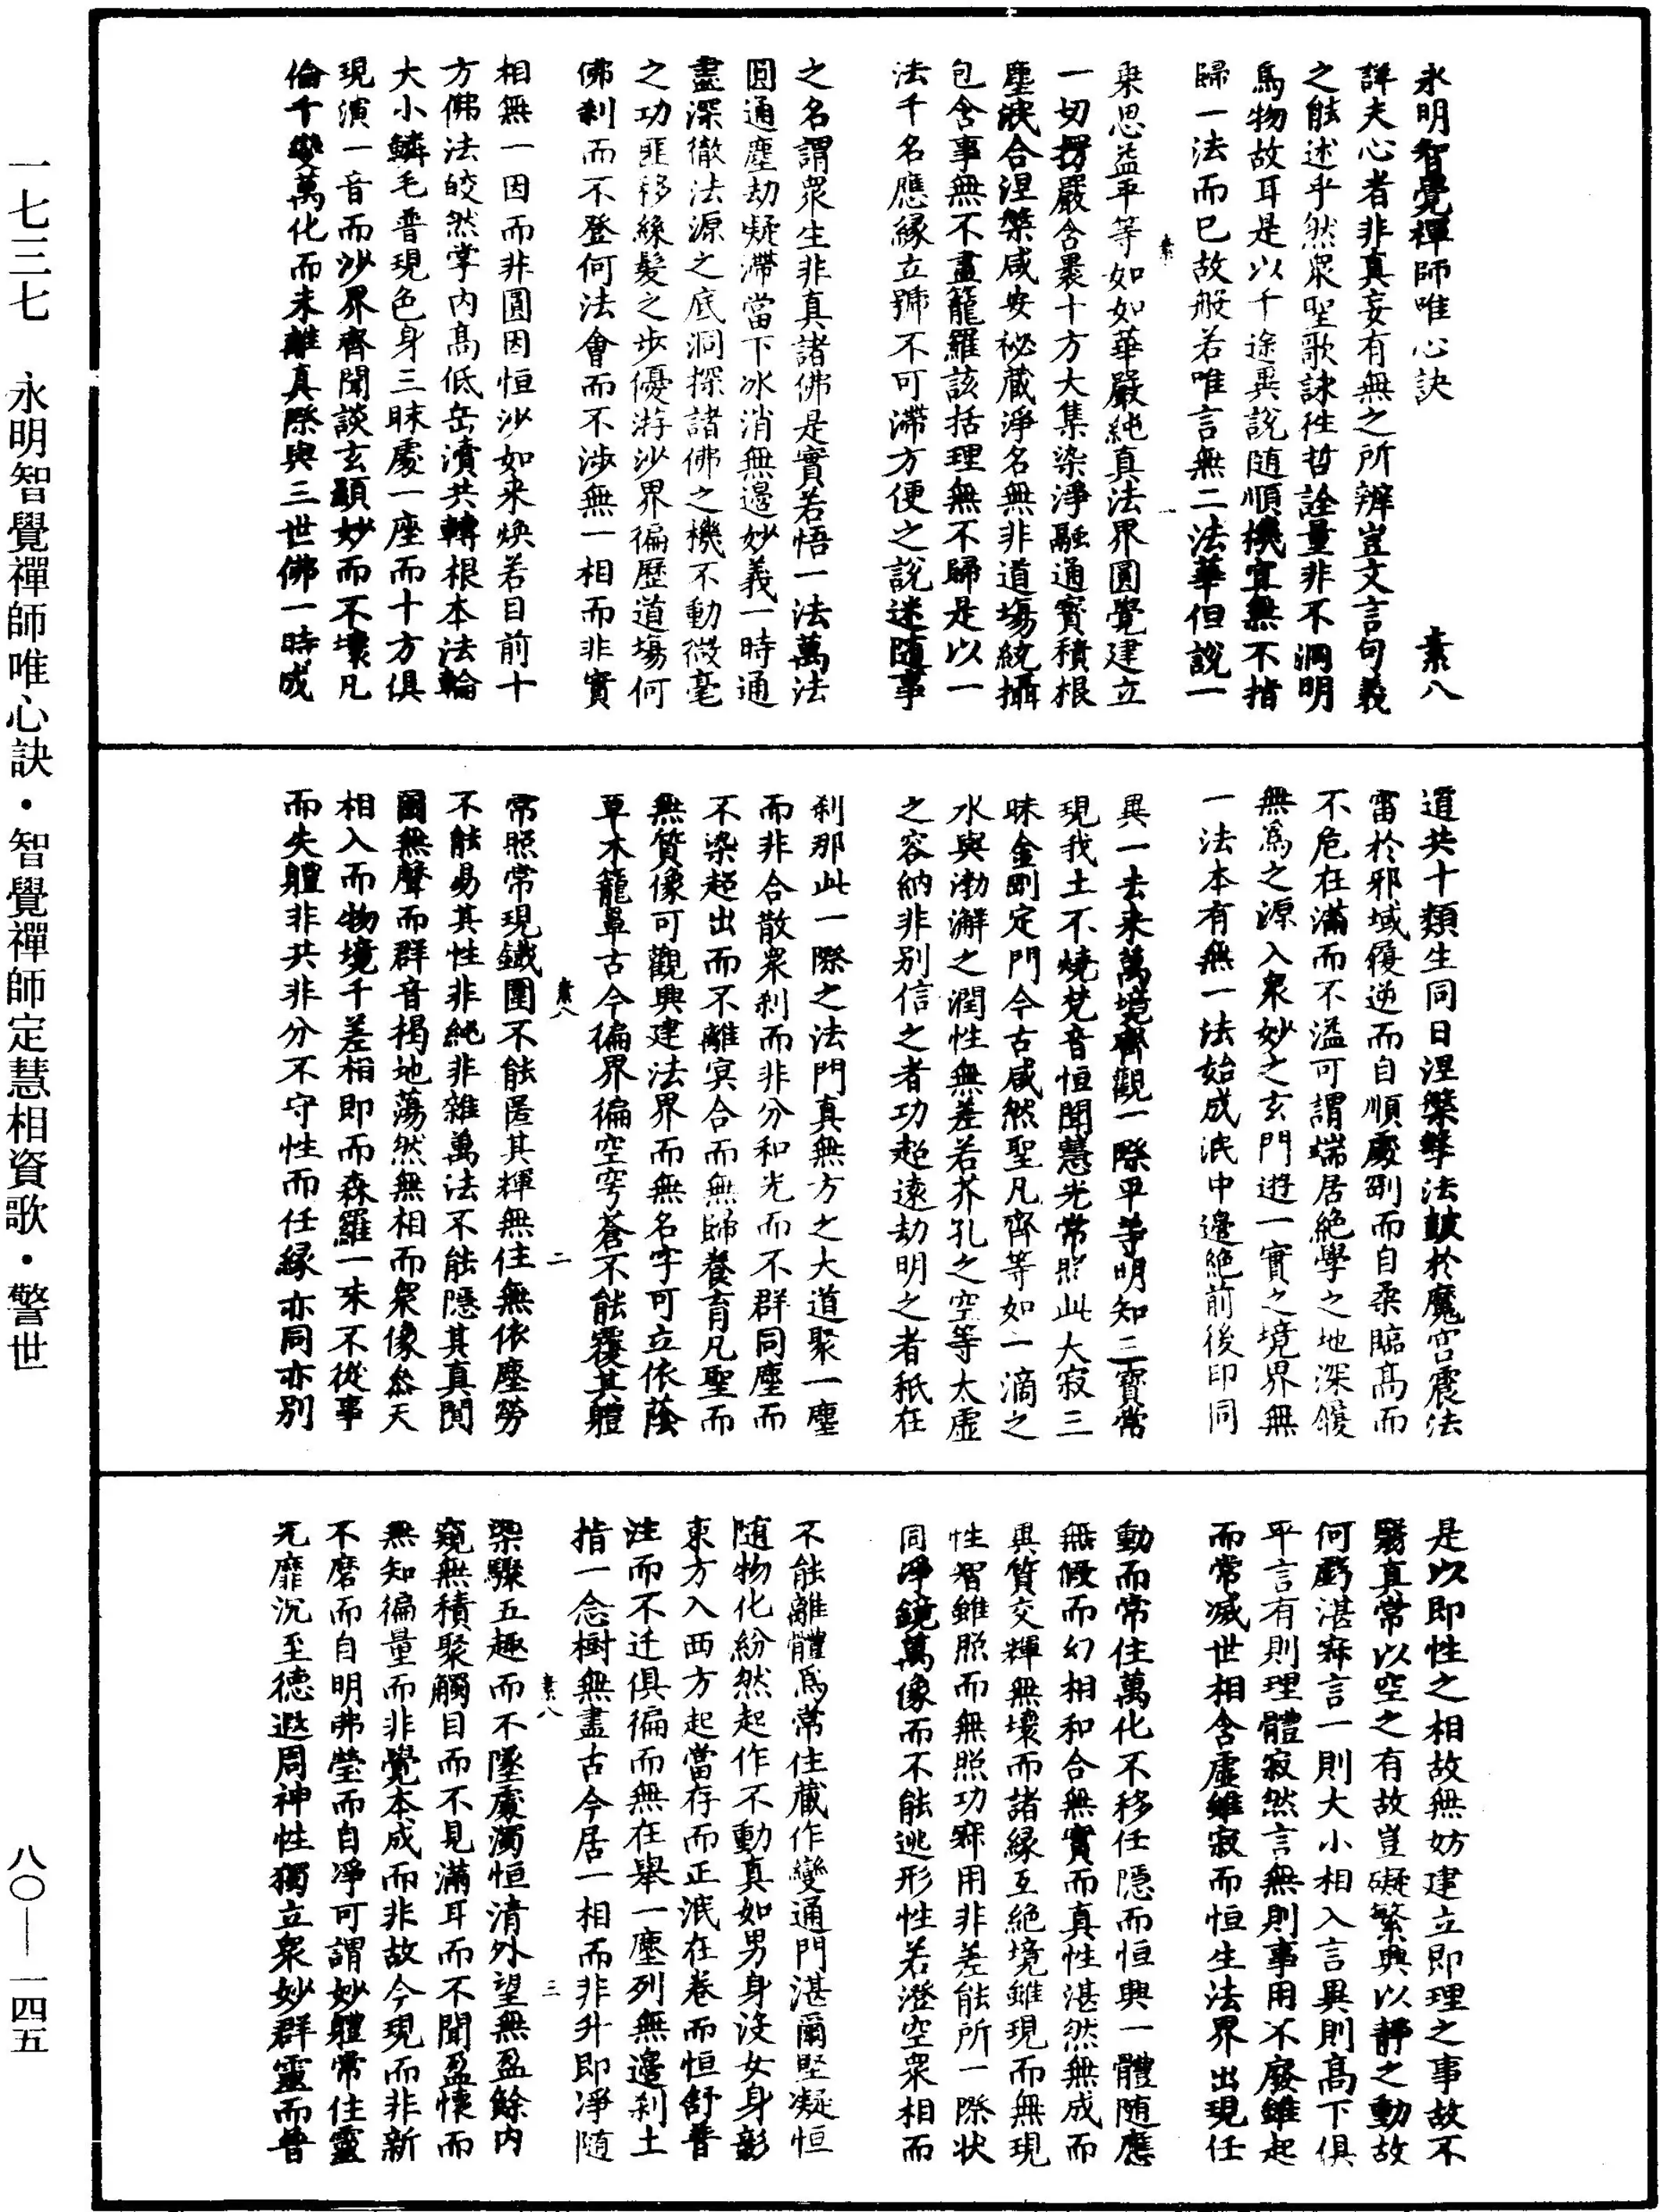 永明智覺禪師唯心訣　素八
詳夫心者非真妄有無之所辨豈文言句義
之能述乎然衆聖歌詠往哲詮量非不洞明
爲物故耳是以千途異說隨順機宜無不指
歸一法而已故般若唯言無二法華但說一
乗思益平等如如華嚴純真法界圓覺建立
一切楞嚴含褁十方大集染淨融通寳積根
塵泯合涅槃咸安祕蔵淨名無非道塲統攝
包含事無不盡籠羅該括理無不歸是以一
法千名應縁立號不可滞方便之說迷隨事
之名謂衆生非真諸佛是實若悟一法萬法
圓通塵劫凝滯當下冰消無邊妙義一時通
盡深徹法源之底洞探諸佛之機不動微毫
之功匪移絲髪之步優游沙界徧歷道塲何
佛刹而不登何法會而不渉無一相而非實
相無一因而非圓因恒沙如来煥若目前十
方佛法皎然掌内髙低岳瀆共轉根本法輪
大小鱗毛普現色身三昧處一座而十方俱
現演一音而沙界齊聞談玄顯妙而不壞凡
倫千變萬化而未離真際與三世佛一時成
道共十類生同日涅槃擊法鼓於魔宫震法
雷於邪域履逆而自順處剛而自柔臨髙而
不危在滿而不溢可謂端居絶學之地深履
無爲之源入衆妙之玄門遊一實之境界無
一法本有無一法始成泯中邊絶前後印同
異一去来萬境齊觀一際平等明知三寳常
現我土不燒梵音恒聞慧光常照此大寂三
昧金剛定門今古咸然聖凡齊等如一滴之
水與渤澥之潤性無差若芥孔之空等太虚
之容納非别信之者功超遠劫明之者秖在
刹那此一際之法門真無方之大道聚一塵
而非合散衆刹而非分和光而不群同塵而
不染超出而不離冥合而無歸養育凡聖而
無質像可觀興建法界而無名字可立依蔭
草木籠罩古今徧界徧空穹蒼不能覆其體
常照常現鐵圍不能匿其輝無住無依塵勞
不能易其性非純非雜萬法不能隱其真闃
爾無聲而群音揭地蕩然無相而衆像㕘天
相入而物境千差相即而森羅一味不從事
而失體非共非分不守性而任縁亦同亦别
是以即性之相故無妨建立即理之事故不
翳真常以空之有故豈礙繁興以靜之動故
何虧湛寂言一則大小相入言異則髙下俱
平言有則理體寂然言無則事用不廢雖起
而常滅世相含虚雖寂而恒生法界出現任
動而常住萬化不移任隱而恒興一體隨應
無假而幻相和合無實而真性湛然無成而
異質交輝無壞而諸縁互絶境雖現而無現
性智雖照而無照功寂用非差能所一際状
同淨鏡萬像而不能逃形性若澄空衆相而
不能離體爲常住蔵作變通門湛爾堅凝恒
隨物化紛然起作不動真如男身没女身彰
東方入西方起當存而正泯在卷而恒舒普
注而不迁俱徧而無在舉一塵列無邊刹土
指一念樹無盡古今居一相而非升即淨隨
染驟五趣而不墜處濁恒清外望無盈餘内
窺無積聚觸目而不見滿耳而不聞盈懐而
無知徧量而非覺本成而非故今現而非新
不磨而自明弗瑩而自淨可謂妙體常住靈
光靡沉至德遐周神性獨立衆妙群靈而普
素　一
素八　二
素八　三
一七三七　永明智覺禪師唯心訣・智覺禪師定慧相資歌・警世
八〇—一四五